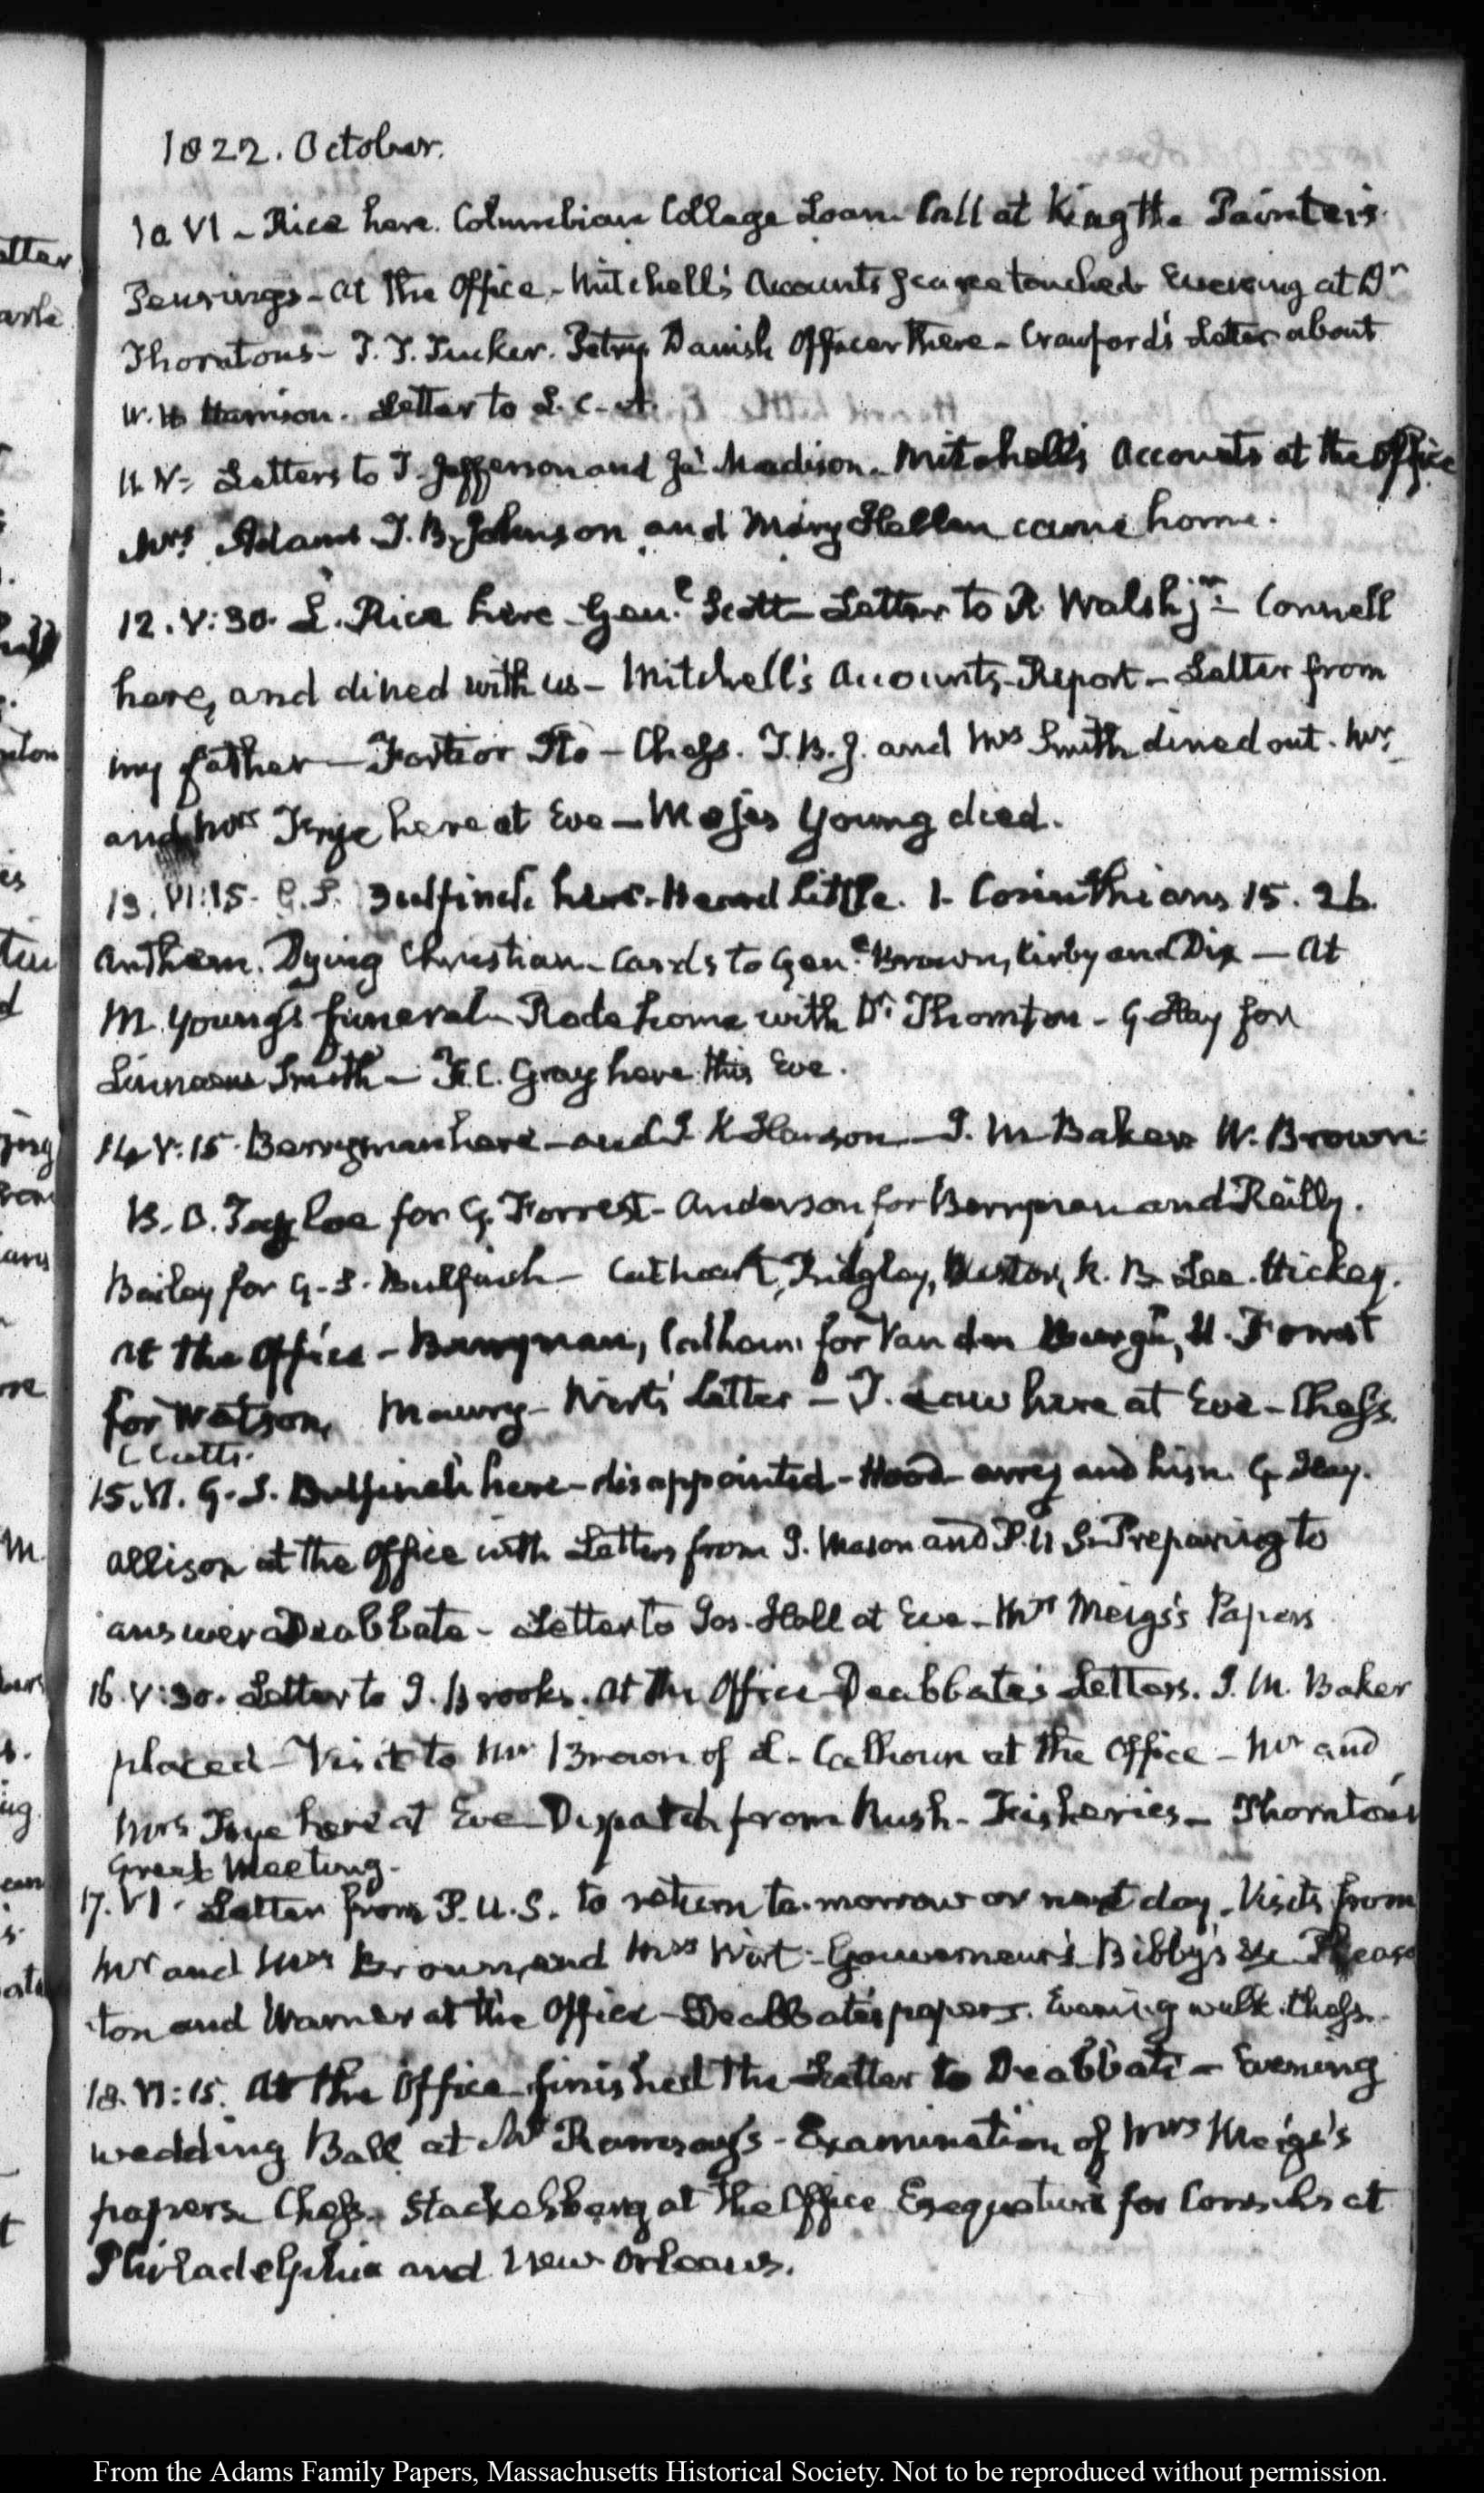 1822. October.
10 VI - Rice here. Columbian College Loan Call at King the Painter's
at the Office - Mitchell's Accounts scarce touched Evening at Dr
Thorntons - T. T. Tucker. Petry Danish Officer there - Crawford's Letter about
W. H Harrison. Letter to L. C. A.
11. V - Letters to T. Jefferson and Ja's Madison - Mitchell's Accounts at the Office
Mrs Adams T. B. Johnson and Mary Hellen came home.
12. V:30. L. Rice here - Genl Scott - Letter to R. Walsh jr - Connell
here, and dined with us - Mitchell's Accounts - Report - Letter from
my father - Fortior Sto - Chess. T. B. J. and Mrs Smith dined out. Mr
and Mrs Frye here at Eve - Moses Young died.
13. VI:15. G. S. Bulfinch here - Heard Little. 1. Corinthians 15. 26.
Anthem. Dying Christian - Cards to Genl Brown, Kirby and Dix - At
M. Young's funeral - Rode home with Dr Thornton - G Hay for
Linnaeus Smith - F. C. Gray here this Eve.
14. V:15. Berryman here - and I K Hanson - J. M Baker W. Brown
B. O. Tayloe for G. Forrest - Anderson for Berryman and Reilly.
Bailey for G. S. Bulfinch - Cathcart, Ridgley, R. B Lee. Hickey.
At the Office - Berryman, Calhoun for Van den Bergh, U. Forrest
for Watson, Maury - Wirt's Letter - T. Law here at Eve - Chess.
C Cutts.
15. VI. G. S. Bulfinch here - disappointed - Hood and his G Hay.
Allison at the Office with Letters from J. Mason and P. U S - Preparing to
answer Deabbate - Letter to Jos. Hall at Eve - Mrs Meigs's Papers
16. V:30. Letter to J. Brooks. At the Office Deabbate's Letters. J. M. Baker
placed - Visit to Mr Brown of L. Calhoun at the Office - Mr and
Mrs Frye here at Eve Dispatch from Rush - Fisheries - Thornton's
Greek Meeting -
17. VI. Letter from P. U. S. to return to-morrow or next day. Visits from
Mr and Mrs Brown, and Mrs Wirt - Gouverneur's Bibby's &c Pleason
ton and Warner at the Office - Deabbate's papers. Evening walk. Chess.
18. VI:15. At the Office finished the Letter to Deabbate - Evening
wedding Ball at Mr Ramsay's - Examination of Mrs Meigs's
papers - Chess. Stackelberg at the Office Exequaturs for Consuls at
Philadelphia and New Orleans.
From the Adams Family Papers, Massachusetts Historical Society. Not to be reproduced without permission.